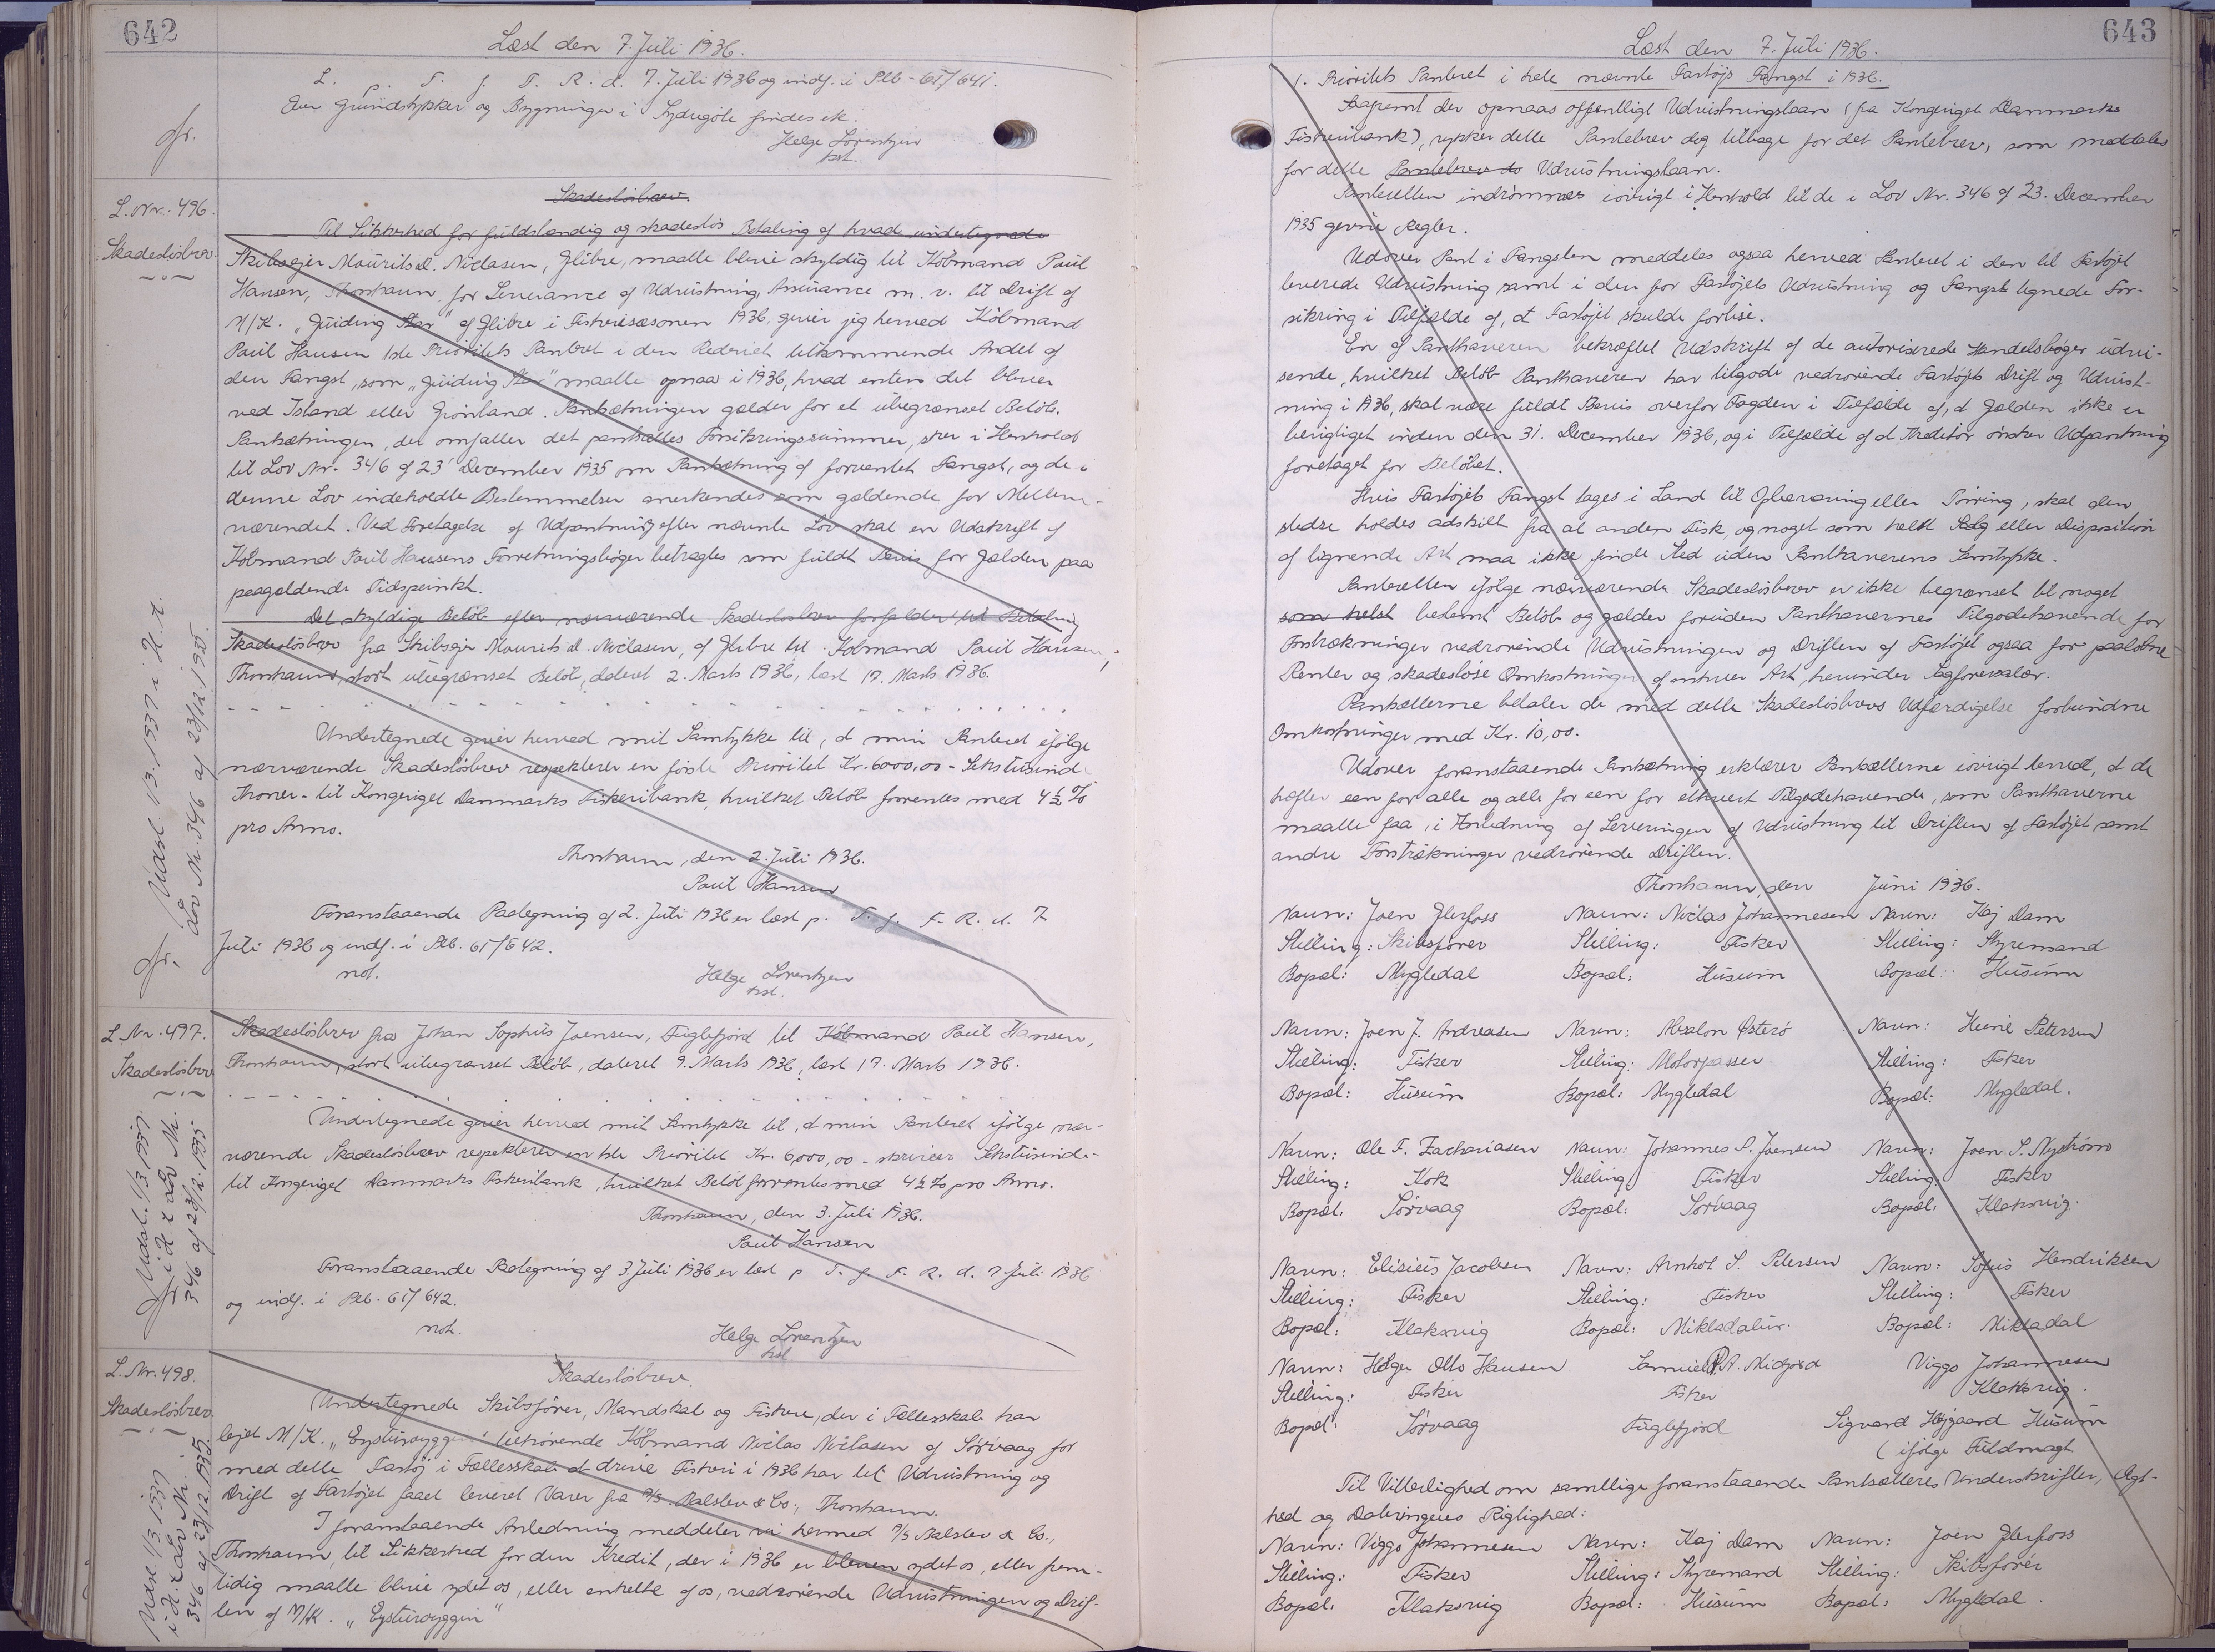 642
Læst den 7. Juli 1936.
L. p. T. f. F. R. d. 7. Juli 1936 og indf. i Ptb. 61/641.
Over Grundstykker og Bygninger i Sydrugöte findes ek.
Helge Lorentzen
kst.
L. Nr. 496.
Skadeslösbrev
Skadeslösbrev.
Til Sikkerhed for fuldstændig og skadeslös Betaling af hvad undertegnede
Skibsejer Mourits d. Niclasen, Glibre, maatte blive skyldig til Köbmand Paul
Hansen, Thorshavn for Leverance af Udrustning, Assurance m. v. til Drift af
M/K. "Guiding Star" af Glibre i Fiskerisæsonen 1936, giver jeg herved Köbmand
Paul Hansen 1ste Prioritets Panteret i den Rederiet tilkommende Andel af
den Fangst, som "Guiding Star" maatte opnaa i 1936, hvad enten det bliver
ved Island eller Grönland. Pantsætningen gælder for et ubegrænset Belöb.
Pantsætningen, der omfatter det pantsattes Forsikringssummer, sker i Henhold
til Lov Nr. 346 af 23' December 1935 om Pantsætning af forventet Fangst, og de i
denne Lov indeholdte Bestemmelser anerkendes som gældende for Mellem-
værendet. Ved Foretagelse af Udpantning efter nævnte Lov skal en Udskrift af
Köbmand Paul Hansens Forretningsböger betragtes som fuldt Bevis for Gælden paa
paagældende Tidspunkt.
Det skyldige Belöb efter nærværende Skadeslösbrev forfalder til Betaling
Skadeslösbrev fra Skibsejer Mourits d. Niclasen, af Glibre til Köbmand Paul Hansen,
Thorshavn, stort ubegrænset Belöb, dateret 2. Marts 1936, læst 17. Marts 1936.
Undertegnede giver herved mit Samtykke til, at min Panteret ifölge
nærværende Skadeslösbrev respekterer en förste Prioritet Kr. 6000,00 - Sekstusinde
Kroner - til Kongeriget Danmarks Fiskeribank, hvilket Belöb forrentes med 4½ %
pro Anno.
Thorshavn, den 2. Juli 1936.
Paul Hansen
Foranstaaende Paategning af 2. Juli 1936 er læst p. T. f. F. R. d. 7
Juli 1936 og indf. i Ptb. 61/642.
not.
Helge Lorentzen
kst.
Udsl. 1/3 1937 i H. t.
Lov Nr. 346 af 23/12. 1935.
L. Nr. 497.
Skadeslösbrev
Skadeslösbrev fra Johan Sophus Joensen, Fuglefjord til Köbmand Paul Hansen,
Thorshavn, stort ubegrænset Belöb, dateret 9. Marts 1936, læst 17. Marts 1936.
Undertegnede giver herved mit Samtykke til, at min Panteret ifölge nær-
værende Skadeslösbrev respekterer en 1ste Prioritet Kr. 6000,00 - skriver Sekstusinde -
til Kongeriget Danmarks Fiskeribank, hvilket Belöb forrentes med 4½ % pro Anno.
Thorshavn, den 3. Juli 1936.
Paul Hansen
Foranstaaende Paategning af 3. Juli 1936 er læst p T. f. F. R. d. 7 Juli 1936
og indf. i Ptb. 61/642.
not.
Helge Lorentzen
kst
Udsl. 1/3 1937
i H. t Lov Nr.
346 af 23/12. 1935
L. Nr. 498.
Skadeslösbrev.
Skadeslösbrev.
Undertegnede Skibsförer, Mandskab og Fiskere, der i Fællesskab har
lejet M/K. "Eysturoyggin" tilhörende Köbmand Niclas Niclasen af Sörvaag for
med dette Fartöj i Fællesskab at drive Fiskeri i 1936 har til Udrustning og
Drift af Fartöjet faaet leveret Varer fra A/S. Balslev & Co., Thorshavn.
I foranstaaende Anledning meddeler vi hermed A/S Balslev & Co.,
Thorshavn, til Sikkerhed for den Kredit, der i 1936 er bleven ydet os, eller frem-
tidig maatte blive ydet os, eller enkelte af os, vedrörende Udrustningen og Drif-
ten af M/K. "Eysturoyggin"
Udsl. 1/3 1937
i H. t Lov Nr.
346 af 23/12 1935.
643
Læst den 7. Juli 1936.
1. Prioritets Panteret i hele nævnte Fartöjs Fangst i 1936.
Saafremt der opnaas offentligt Udrustningslaan (fra Kongeriget Danmarks
Fiskeribank), rykker dette Pantebrev dog tilbage for det Pantebrev, som meddeles
for dette Pantebrev to Udrustningslaan.
Panteretten indrömmes iövrigt i Henhold til de i Lov Nr. 346 af 23. December
1935 givne Regler.
Udover Pant i Fangsten meddeles ogsaa herved Panteret i den til Fartöjet
leverede Udrustning samt i den for Fartöjets Udrustning og Fangst tegnede For-
sikring i Tilfælde af, at Fartöjet skulde forlise.
En af Panthaveren bekræftet Udskrift af de autoriserede Handelsböger udvi-
sende, hvilket Belöb Panthaveren har tilgode vedrörende Fartöjets Drift og Udrust-
ning i 1936, skal være fuldt Bevis overfor Fogden i Tilfælde af, at Gælden ikke er
berigtiget inden den 31. December 1936, og i Tilfælde af at Kreditor önsker Udpantning
foretaget for Belöbet.
Hvis Fartöjets Fangst tages i Land til Opbevaring eller Törring, skal den
stedse holdes adskilt fra al anden Fisk, og noget som helst Salg eller Disposition
af lignende Art maa ikke finde Sted uden Panthaverens Samtykke.
Panteretten ifölge nærværende Skadeslösbrev er ikke begrænset til noget
som helst bestemt Belöb og gælder foruden Panthavernes Tilgodehavende for
Forstrækninger vedrörende Udrustningen og Driften af Fartöjet ogsaa for paalöbne
Renter og skadeslöse Omkostninger af enhver Art, herunder Sagförersalær.
Pantsætterne betaler de med dette Skadeslösbrevs Udfærdigelse forbundne
Omkostninger med Kr. 10,00.
Udover foranstaaende Pantsætning erklærer Pantsætterne iövrigt herved, at de
hæfter een for alle og alle for een for ethvert Tilgodehavende, som Panthaverne
maatte faa, i Anledning af Leveringen af Udrustning til Driften af Fartöjet samt
andre Forstrækninger vedrörende Driften.
Thorshavn, den Juni 1936.
Navn: Joen Glerfoss Navn: Niclas Johannesen Navn: Kaj Dam
Stilling: Skibsförer Stilling: Fisker Stilling: Styremand
Bopæl: Mygledal Bopæl: Husum Bopæl: Husum
Navn: Joen J. Andreasen Navn: Absalon Österö Navn: Heine Petersen
Stilling: Fisker Stilling: Motorpasser Stilling: Fisker
Bopæl: Husum Bopæl: Mygledal Bopæl: Mygledal.
Navn: Ole F. Zachariasen Navn: Johannes S. Joensen Navn: Joen S. Nyström
Stilling: Kok Stilling: Fisker Stilling: Fisker
Bopæl: Sörvaag Bopæl: Sörvaag Bopæl: Klaksvig.
Navn: Elisius Jacobsen Navn: Arnhot S. Petersen Navn: Sofus Hendriksen
Stilling: Fisker Stilling: Fisker Stilling: Fisker
Bopæl: Klaksvig Bopæl: Mikladalur. Bopæl: Mikladal
Navn: Holger Otto Hansen Samuel P. A. Midjord Viggo Johannesen
Stilling: Fisker Fisker Klaksvig.
Bopæl: Sörvaag Fuglefjord Sigvard Höjgaard Husum
( ifölge Fuldmagt
Til Vitterlighed om samtlige foranstaaende Pantsætteres Underskrifter, Ægt-
hed og Dateringens Rigtighed:
Navn: Viggo Johannesen Navn: Kaj Dam Navn: Joen Glerfoss
Stilling: Fisker Stilling: Styremand Stilling: Skibsförer
Bopæl: Klaksvig Bopæl: Husum Bopæl: Mygledal.